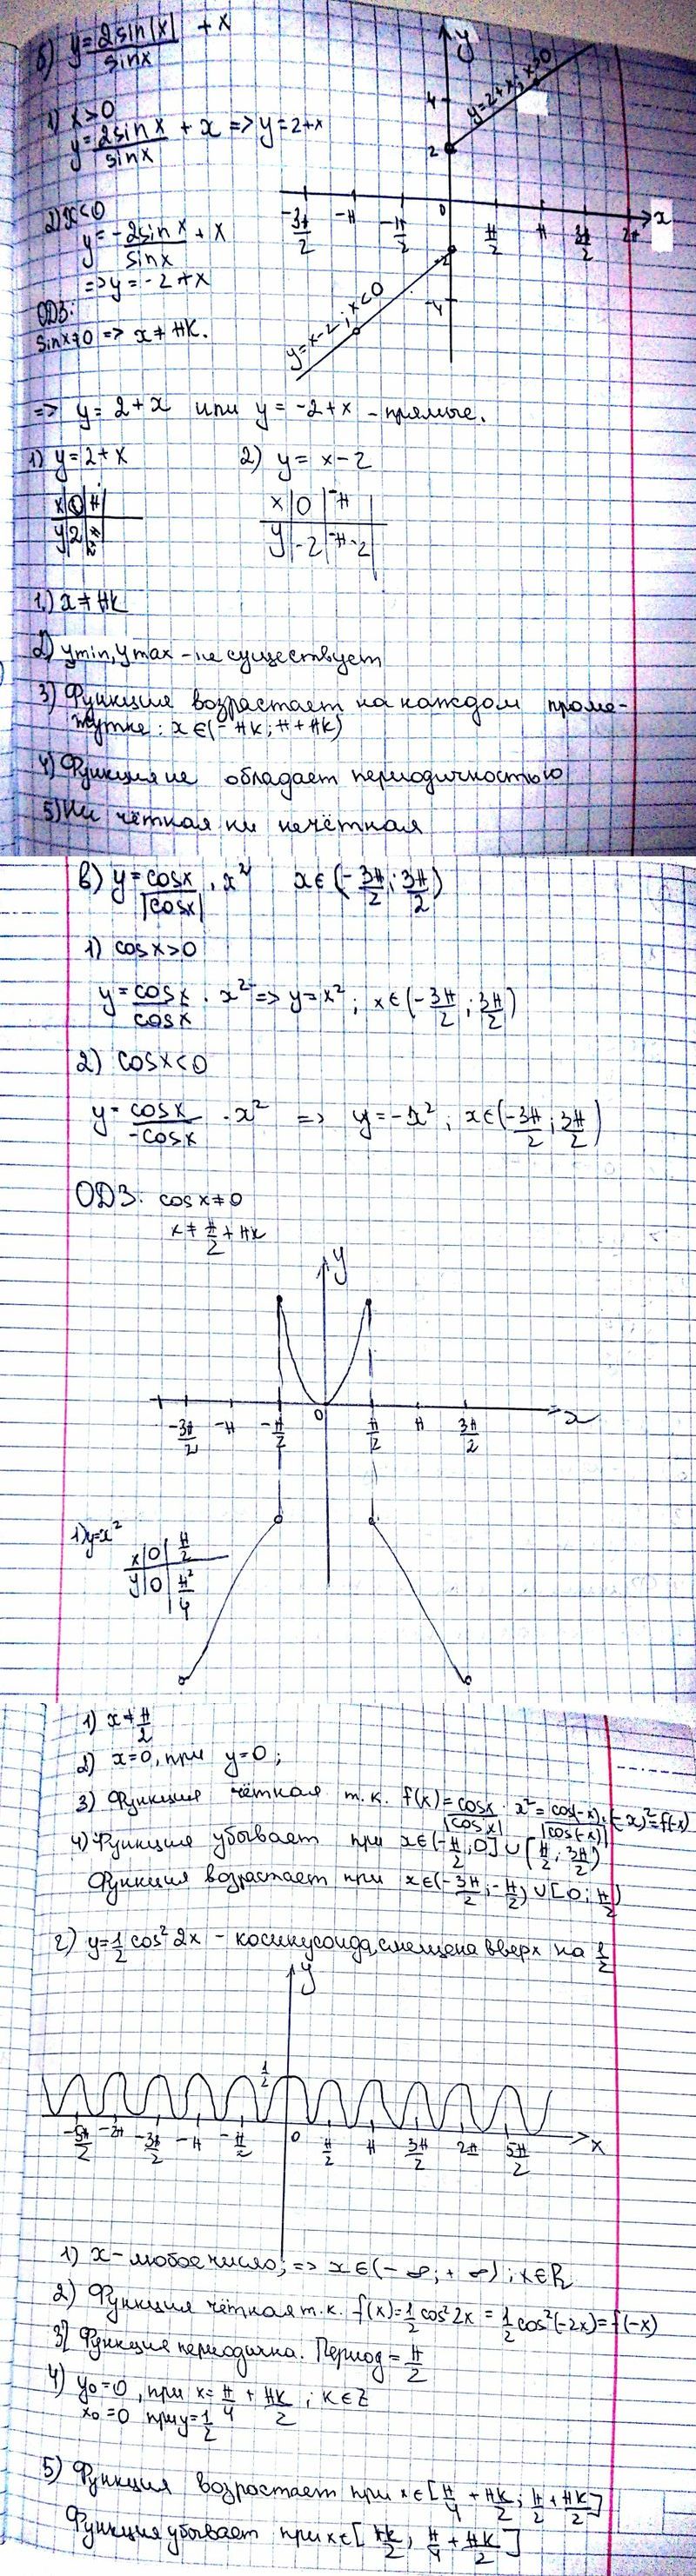 б) y = 2sin|x|/sinx + x
1) x>0
y = 2sinx/sinx + x => y=2+x
2) x<0
y = -2sinx/sinx + x
=> y = -2+x
ОДЗ:
sinx≠0 => x≠πk.
y
4
y=2+x; x>0
2
-3π/2 -π -π/2 0 π/2 π 3π/2 2π x
-2
-4
y=x-2; x<0
=> y = 2+x или y = -2+x - прямые.
1) y=2+x 2) y = x-2
x 0 π
y 2
x 0 -π
y -2 -π-2
1.) x≠πk
2) ymin, ymax - не существует
3) Функция возрастает на каждом проме-
жутке: x∈(-πk; π+πk)
4) Функция не обладает периодичностью
5) Ни чётная ни нечётная
в) y = cosx/|cosx| · x² x∈(-3π/2; 3π/2)
1) cosx>0
y = cosx/cosx · x² => y=x²; x∈(-3π/2; 3π/2)
2) cosx<0
y = cosx/-cosx · x² => y=-x²; x∈(-3π/2; 3π/2)
ОДЗ: cosx≠0
x≠π/2+πk
y
-3π/2 -π -π/2 0 π/2 π 3π/2 x
1) y=x²
x 0 π/2
y 0 π²/4
1) x≠π/2
2) x=0, при y=0;
3) Функция чётная т.к. f(x)=cosx/|cosx| · x² = cos(-x)/|cos(-x)| · (-x)²=f(-x)
4) Функция убывает при x∈(-π/2; 0]∪(π/2; 3π/2)
Функция возрастает при x∈(-3π/2; -π/2)∪[0; π/2)
г) y=1/2 cos² 2x - косинусоида, смещена вверх на 1/2
y
1/2
-5π/2 -2π -3π/2 -π -π/2 0 π/2 π 3π/2 2π 5π/2 x
1) x - любое число; => x∈(-∞; +∞); x∈R
2) Функция чётная т.к. f(x)=1/2 cos² 2x = 1/2 cos²(-2x)=f(-x)
3) Функция периодична. Период = π/2
4) y₀=0, при x=π/4 + πk/2; k∈Z
x₀=0 при y=1/2
5) Функция возростает при x∈[π/4 + πk/2; π/2 + πk/2]
Функция убывает при x∈[πk/2; π/4 + πk/2]